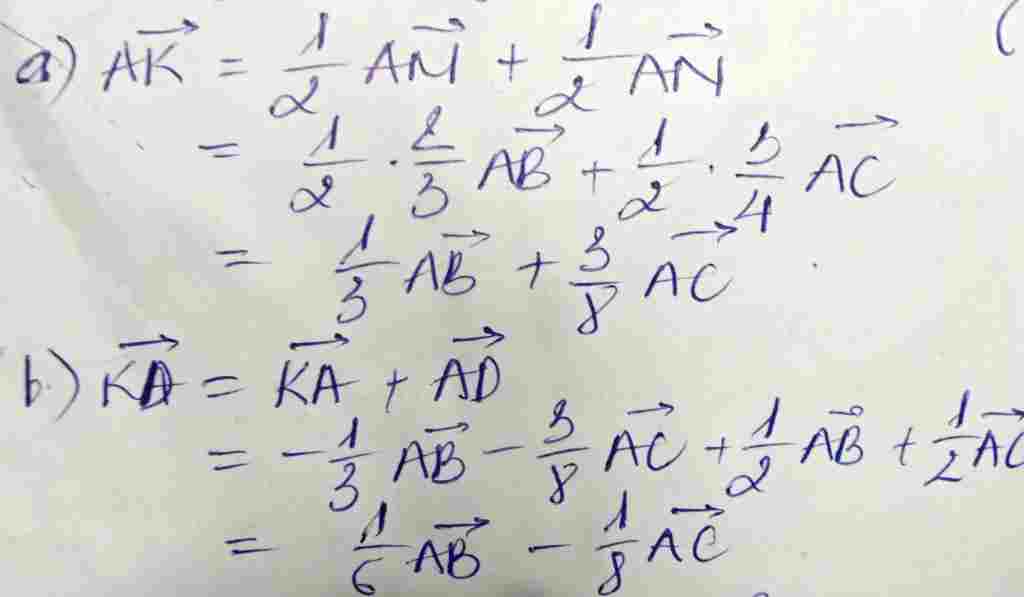 a) AK→ = 1/2 AM→ + 1/2 AN→
= 1/2 . 2/3 AB→ + 1/2 . 3/4 AC→
= 1/3 AB→ + 3/8 AC→
b) KD→ = KA→ + AD→
= - 1/3 AB→ - 3/8 AC→ + 1/2 AB→ + 1/2 AC
= 1/6 AB→ - 1/8 AC→